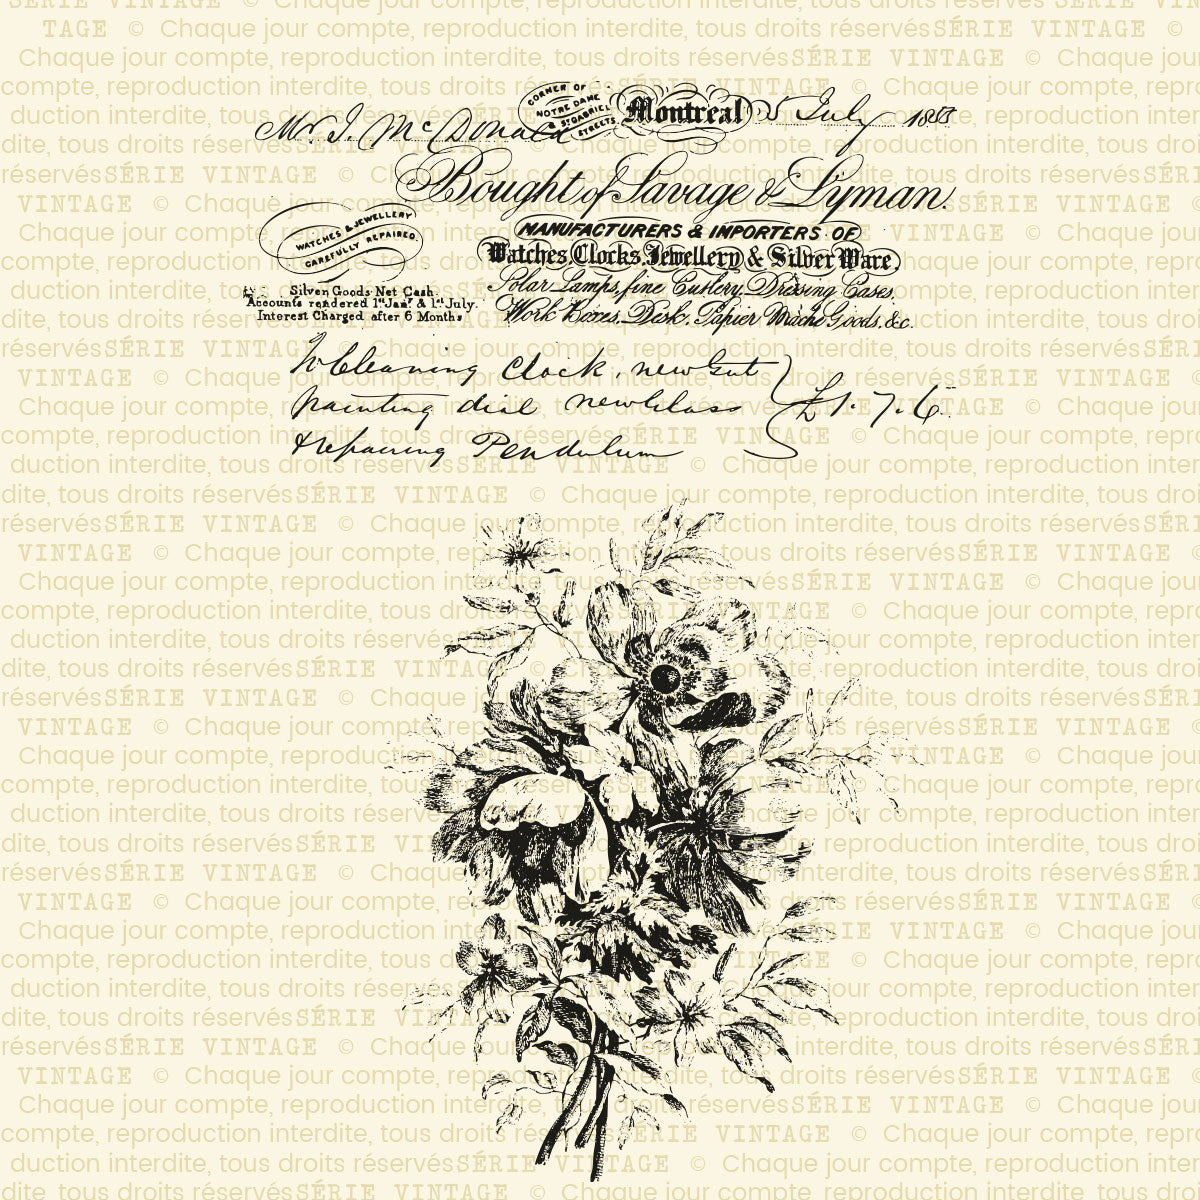 CORNER OF
NOTRE DAME
& ST GABRIEL
STREETS
Montreal 5 July 185
Mr. J. McDonald
Bought of Savage & Lyman.
WATCHES & JEWELLERY
CAREFULLY REPAIRED.
MANUFACTURERS & IMPORTERS OF
Watches, Clocks, Jewellery & Silver Ware,
Solar Lamps, fine Cutlery, Dressing Cases,
Work Boxes, Desk, Papier Mache Goods, &c.
Silver Goods Net Cash.
Accounts rendered 1st Jany & 1st July.
Interest Charged after 6 Months.
To Cleaning Clock, new Gut
painting dial new Glass £1.7.6
& repairing Pendulum
SÉRIE VINTAGE © Chaque jour compte, reproduction interdite, tous droits réservés